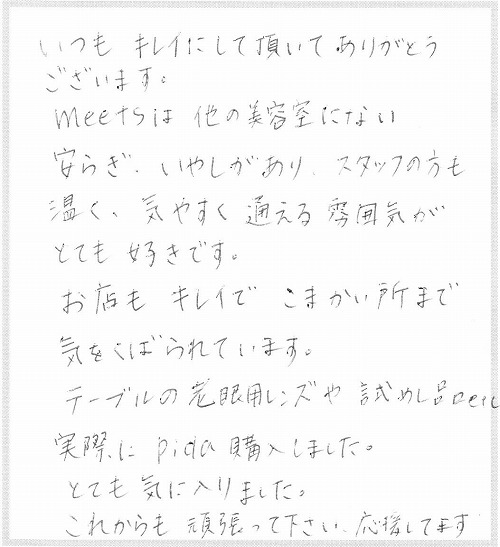 いつも キレイにして頂いて ありがとう
ございます。
meetsは 他の美容室にない
安らぎ、いやしがあり、スタッフの方も
温く、気やすく 通える 雰囲気が
とても 好きです。
お店も キレイで こまかい所まで
気をくばられています。
テーブルの 老眼用レンズや 試めし品
実際に 購入しました。
とても 気に入りました。
これからも 頑張って下さい、応援してます